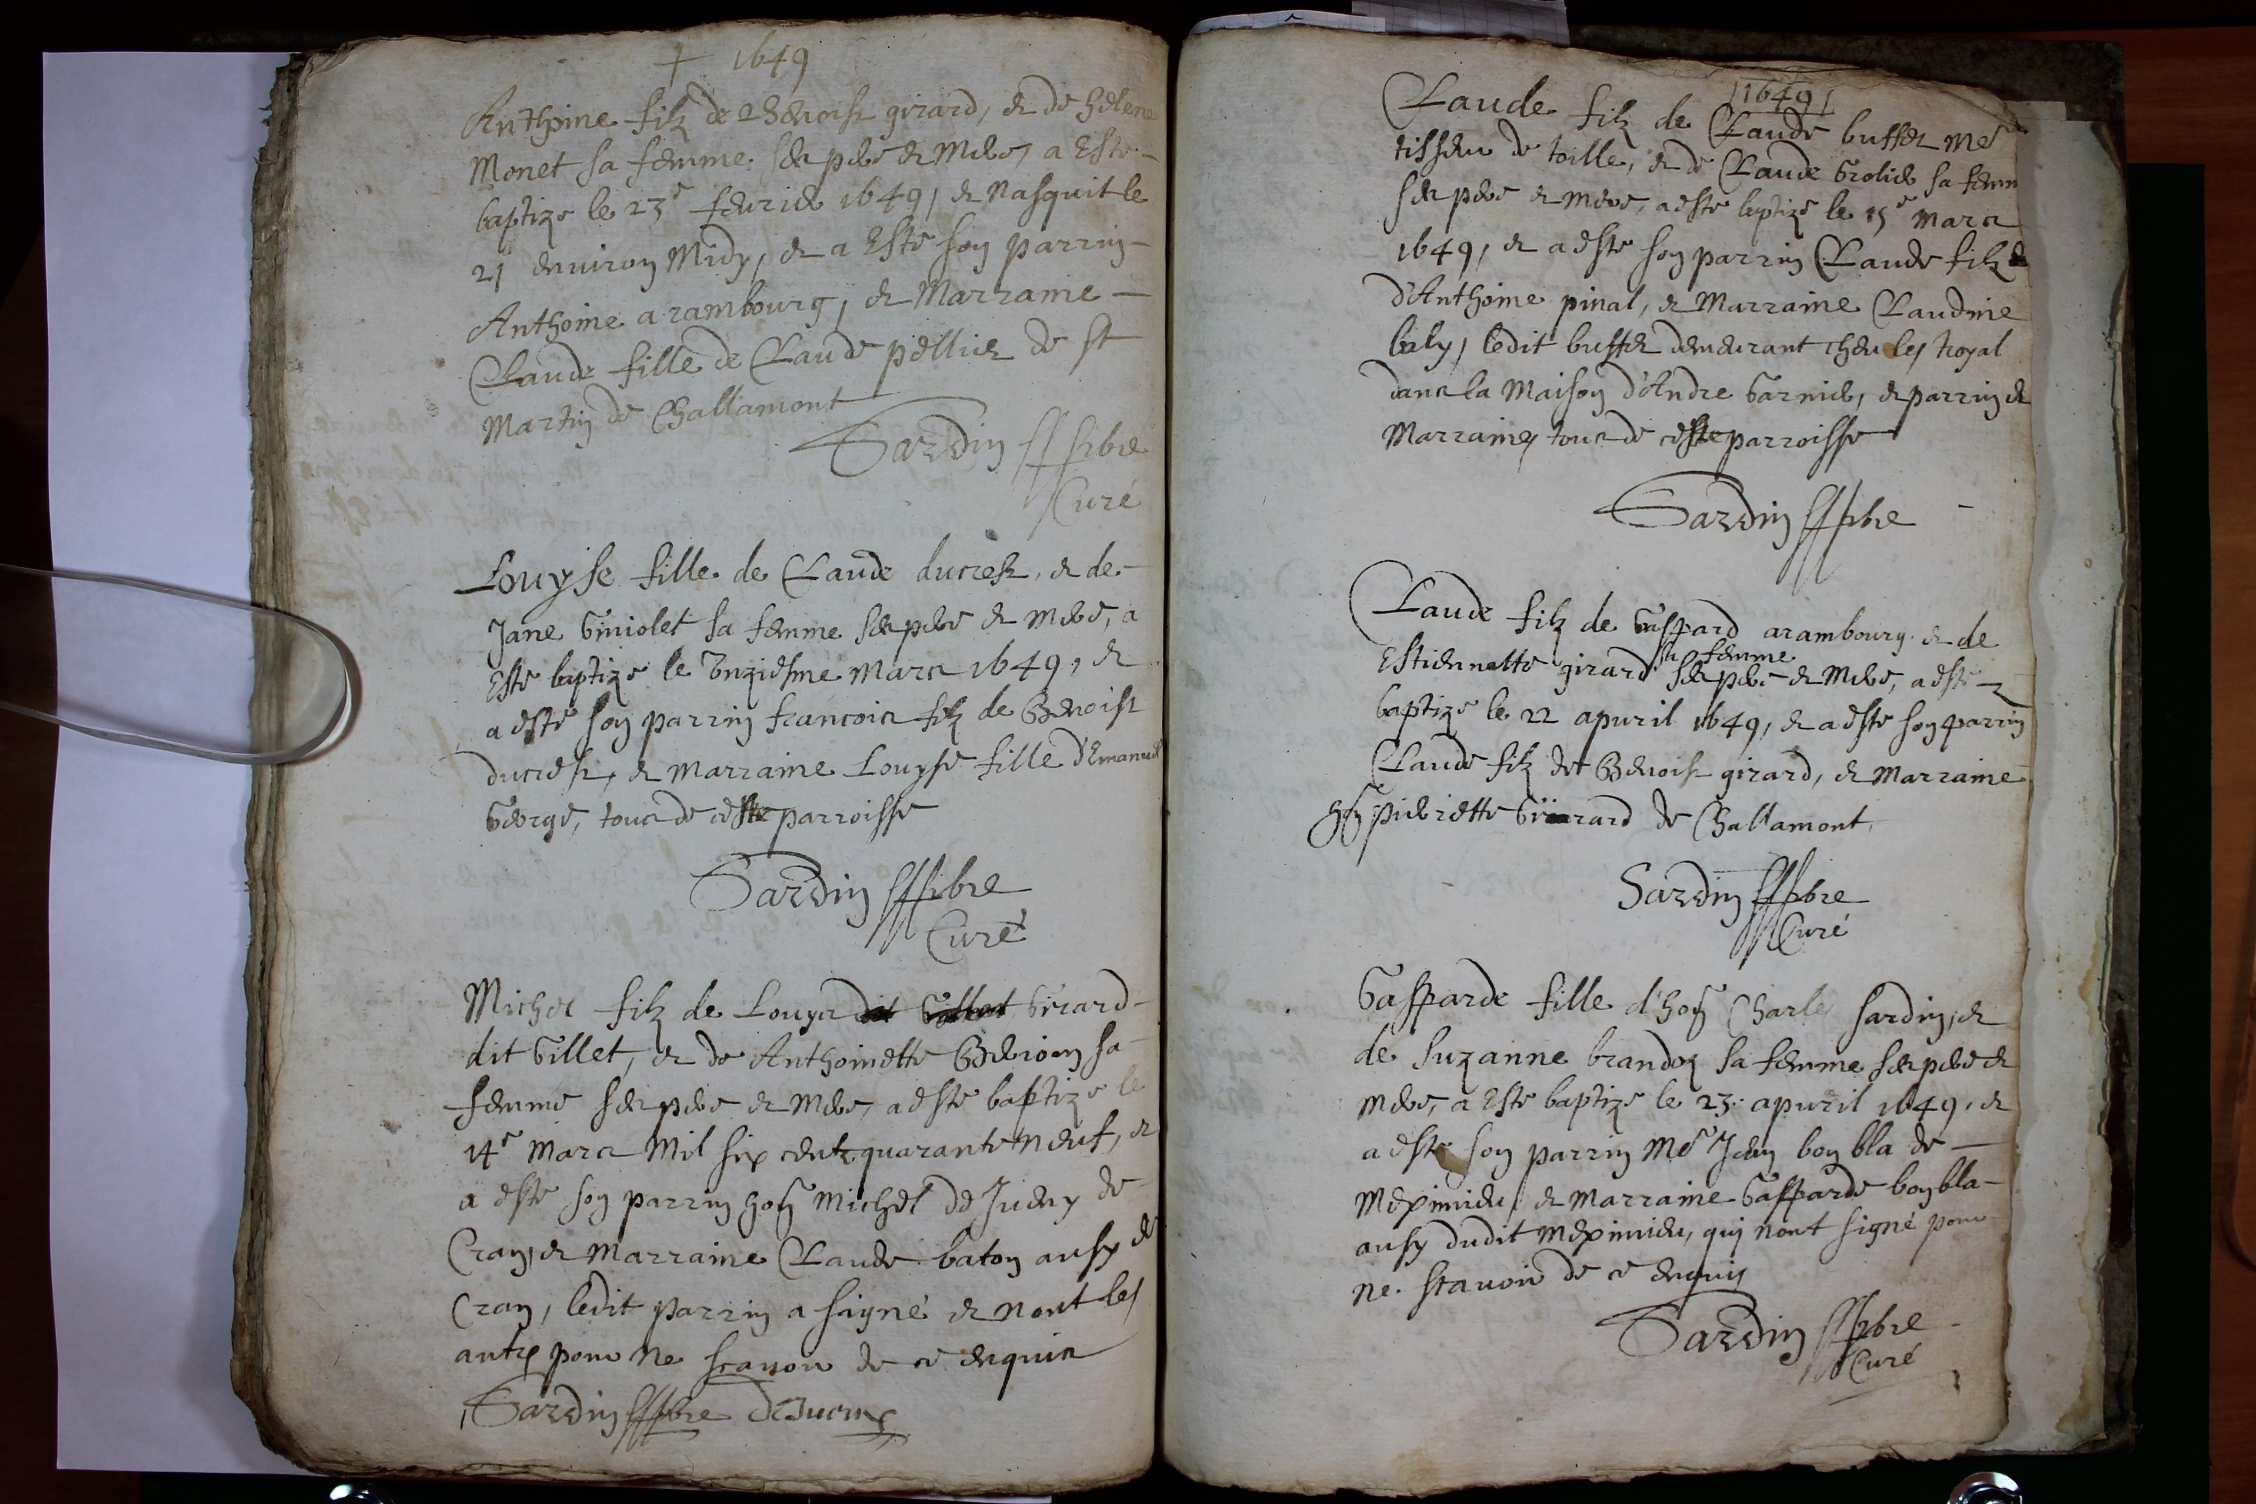 + 1649
Anthoine filz de Benoist girard, et de helene
Monet sa femme ses pere et Mere, a Este
baptize le 23e feurier 1649, et Nasquit le
21 enuiron Midy, et a Este son parrin
Anthoine arambourg, et Marraine
Claude fille de Claude pellier de St
Martin de Challamont
Sardin pbre
Curé
Louyse fille de Claude ducrest, et de
Jane Giniolet sa femme ses pere et Mere, a
Este baptize le Unziesme Mars 1649, et
a esté son parrin francois filz de Benoist
ducrest, et Marraine Louyse fille d'Emanuel
George, tous de ceste parroisse
Sardin pbre
Curé
Michel filz de Louys Girard
dit Gillet, et de Anthoinette sa
femme ses pere et Mere, a este baptize le
14e Mars Mil six centz quarante Neuf, et
a este son parrin hon Michel de Jueny de
Cran, et Marraine Claude baton ausy de
Cran, ledit parrin a signé et nont les
autres pour Ne scauoir de ce enquis
Sardin pbre
1649
Claude filz de Claude buffet Me
tisseur de toille, et de Claude Grolier sa femm
ses pere et Mere, a esté baptizé le 15e Mars
1649, et a este son parrin Claude filz
d'Anthoine pinal, et Marraine Claudine
baly, ledit buffet demeurant cheu les Royal
dans la Maison d'Andre Garnier, et parrin et
Marraine, tous de ceste parroisse
Sardin pbre
Claude filz de Gaspard arambourg et de
Estiennette girard sa femme ses pere et Mere, a este
baptize le 22 apuril 1649, et a este son parrin
Claude filz de Benoist girard, et Marraine
hon pierrette Girard de Challamont
Sardin pbre
Curé
Gasparde fille d'hon Charles Sardin, et
de Suzanne brandoz sa femme ses pere et
Mere, a Este baptize le 23 apuril 1649, et
a este son parrin Me Jean bonbla de
Meximieu, et Marraine Gasparde bonbla
ausy dudit Meximieu, qui nont signé pour
ne scauoir de ce enquis
Sardin pbre
Curé